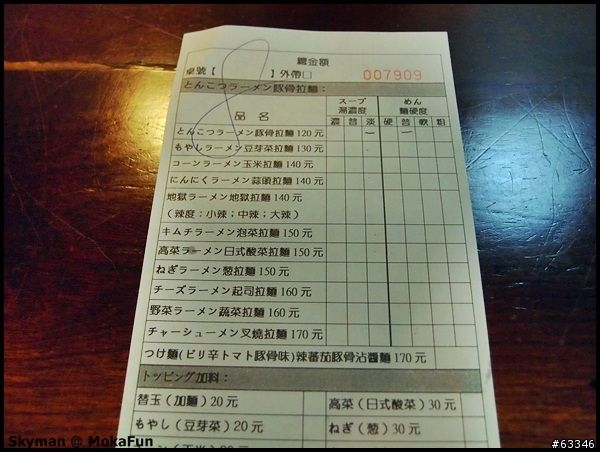 總金額
桌號【 】外帶□ 007909
とんこつラーメン豚骨拉麵：
品 名 スープ 湯濃度 めん 麵硬度
濃 普 淡 硬 普 軟 粗
とんこつラーメン豚骨拉麵 120 元 一 一
もやしラーメン豆芽菜拉麵 130 元
コーンラーメン玉米拉麵 140 元
にんにくラーメン蒜頭拉麵 140 元
地獄ラーメン地獄拉麵 140 元
（辣度：小辣；中辣；大辣）
キムチラーメン泡菜拉麵 150 元
高菜ラーメン日式酸菜拉麵 150 元
ねぎラーメン葱拉麵 150 元
チーズラーメン起司拉麵 160 元
野菜ラーメン蔬菜拉麵 160 元
チャーシューメン叉燒拉麵 170 元
つけ麵(ピリ辛トマト豚骨味)辣蕃茄豚骨沾醬麵 170 元
トッピング加料：
替玉（加麵）20 元 高菜（日式酸菜）30 元
もやし（豆芽菜）20 元 ねぎ（葱）30 元
Skyman @ MokaFun #63346